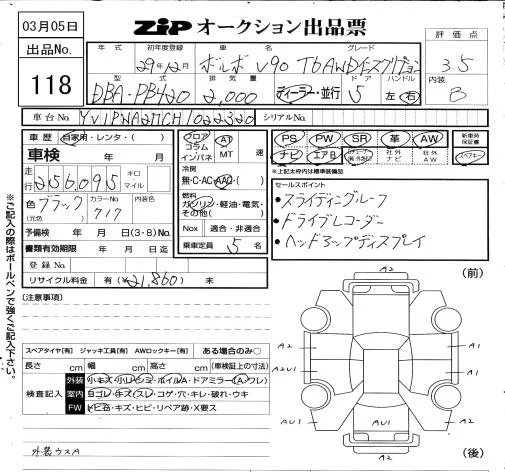 03月05日
出品No.
118
ZIP オークション出品票
評価点
3.5
内装
B
年式
初年度登録
車名
グレード
29年12月
ボルボ V90 T6AWDインスクリプション
型式
排気量
ドア
ハンドル
DBA-PB420
2,000
ディーラー・並行
5
左 右
車台No.
YV1PWA2MCH1022320
シリアルNo.
車歴 自家用・レンタ・( )
車検 年 月
走行 256,095 キロ マイル
色 ブラック
(元色)
カラーNo
717
内装色
予備検 年 月 日(3・8)No.
書類有効期限 年 月 日迄
登録No.
リサイクル料金 有(¥21,860)未
フロア
コラム
インパネ
AT
MT
速
冷房
無・C・AC・AAC・( )
燃料
ガソリン・軽油・電気・
その他( )
Nox 適合・非適合
乗車定員 5 名
PS PW SR 革 AW
ナビ エアB
社外ナビ
社外AW
新車時保証書
スペアキー
*上記太枠内は標準装備品
セールスポイント
・スライディングルーフ
・ドライブレコーダー
・ヘッドアップディスプレイ
※ご記入の際はボールペンで強くご記入下さい。
[注意事項]
スペアタイヤ[有] ジャッキ工具[有] AWロックキー[有] ある場合のみ○
長さ cm 幅 cm 高さ cm (車検証上の寸法)
検査記入
外装 小キズ・小リペ・シミ・ホイルA・ドアミラー(A・ワレ)
室内 ヨゴレ・キズ・スレ・コゲ・穴・キレ・破れ・ウキ
FW トビ石・キズ・ヒビ・リペア跡・X要ス
外装ウスA
(前)
A2
A2
A1
A2U1
A1
AU1
AU1
A2
(後)